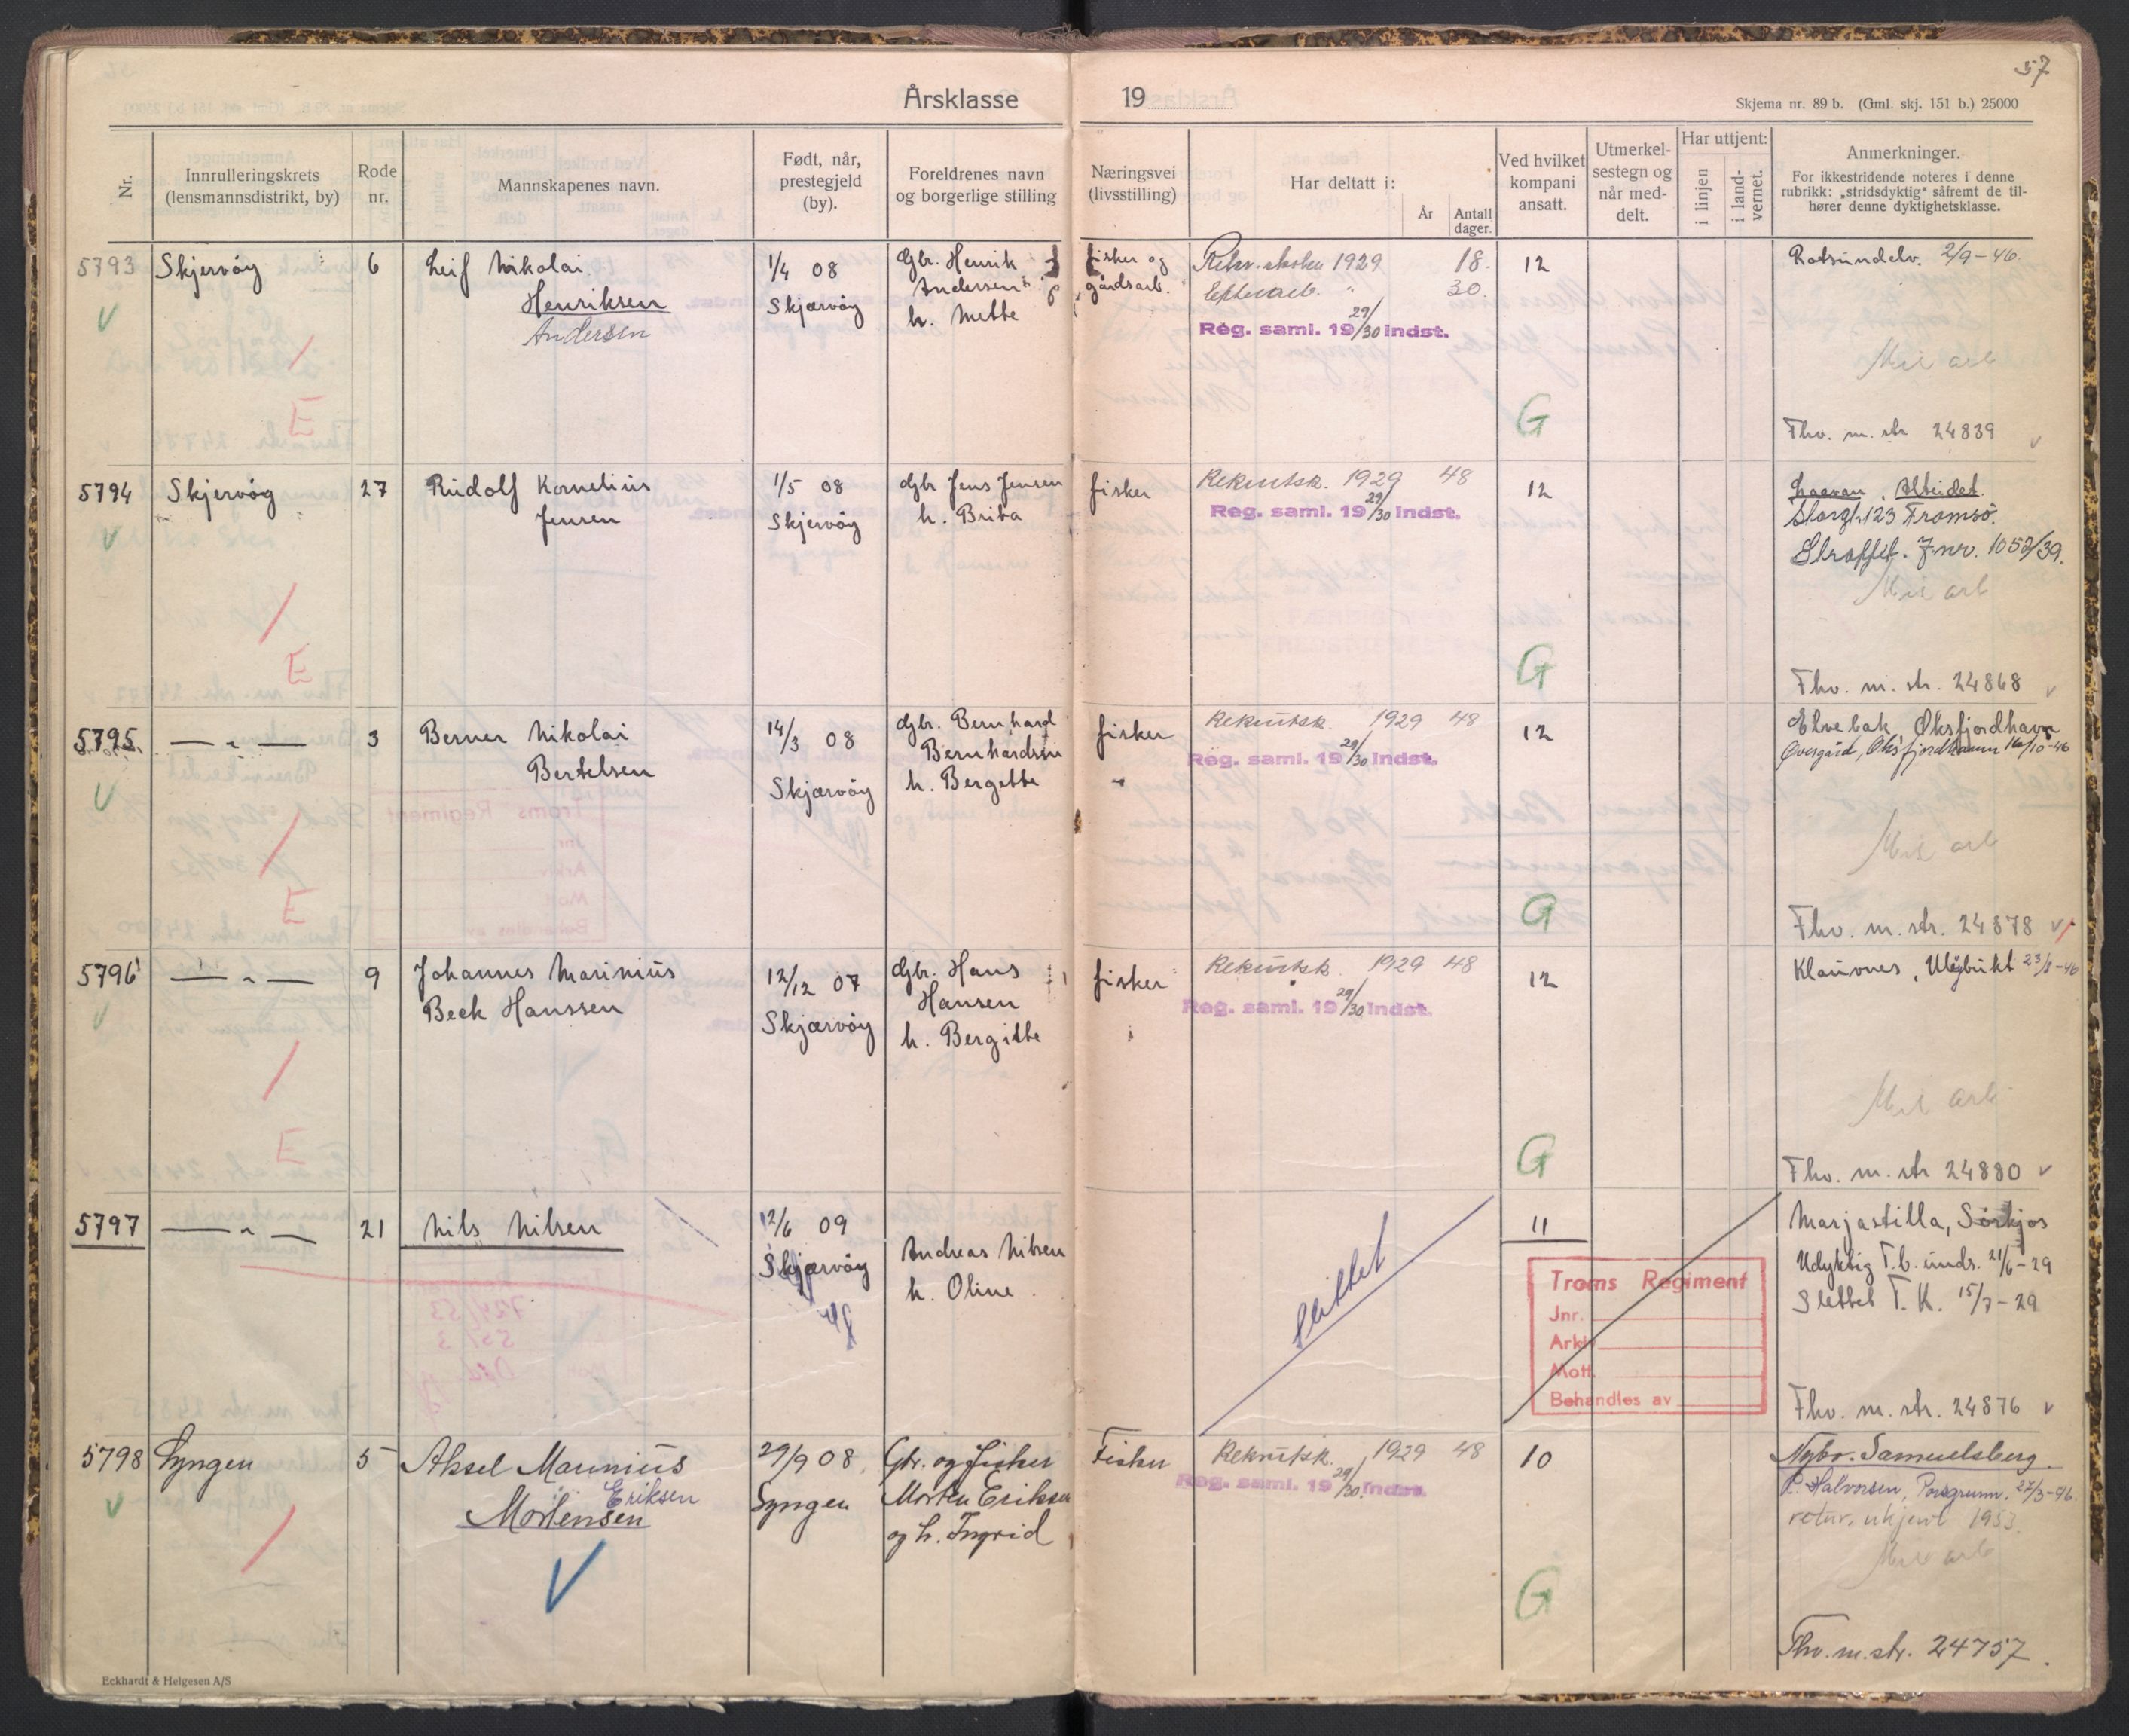 57
Årsklasse 19
Skjema nr. 89 b. (Gml. skj. 151 b.) 25000
Nr.
Innrulleringskrets
(lensmannsdistrikt, by)
Rode
nr.
Mannskapenes navn.
Født, når,
prestegjeld
(by).
Foreldrenes navn
og borgerlige stilling
Næringsvei
(livsstilling)
Har deltatt i:
År
Antall
dager.
Ved hvilket
kompani
ansatt.
Utmerkel-
sestegn og
når med-
delt.
Har uttjent:
i linjen
i land-
vernet.
Anmerkninger.
For ikkestridende noteres i denne
rubrikk: „stridsdyktig“ såfremt de til-
hører denne dyktighetsklasse.
5793 Skjervöy 6
Leif Nikolai
Henriksen
Andersen
1/4 08
Skjærvöy
Gbr. Henrik
Andersen
h. Mette
fisker og
gårdsarb.
Rekr. skolen 1929 18.
30.
Reg. saml. 19 29/30 Indst.
12
G
Rotsundelv. 2/9-46
Mil arb
Fhv. m. str 24839
E
5794 Skjervöy 27
Rudolf Kornelius
Jensen
1/5 08
Skjervöy
Gbr Jens Jensen
h. Brita
fisker
Rekrutsk. 1929 48
Reg. saml. 19 29/30 Indst.
12
G
Alteidet.
Storgt. 123 Tromsö.
Straffef. J.nr. 1052/39.
Mil arb
Fhv. m. str. 24868
E
5795 — " — 3
Berner Nikolai
Bertelsen
14/3 08
Skjærvöy
Gbr. Bernhard
Bernhardsen
h. Bergette
fisker
"
Rekrutsk. 1929 48
Reg. saml. 19 29/30 Indst.
12
G
Elvebak Øksfjordhavn
Øvergård, Øksfjordhamn 16/10-46
Mil arb
Fhv. m. str. 24878
E
5796 — " — 9
Johannes Marinius
Beck Hanssen
12/12 07
Skjærvöy
Gbr. Hans
Hansen
h. Bergitte
fisker
Rekrutsk. 1929 48
Reg. saml. 19 29/30 Indst.
12
G
Klauvnes, Uløybukt 23/8-46
Mil arb
Fhv. m. str 24880
E
5797 — " — 21
Nils Nilsen
12/6 09
Skjærvöy
Andreas Nilsen
h. Oline
slettet
11
Troms Regiment
Jnr.
Arkiv
Mott.
Behandles av
Marjastilla, Sörkjos
Udyktig T.b. unds. 21/6-29
Slettet T. K. 15/7-29
Fhv. m. str. 24876
5798 Lyngen 5
Aksel Marinius
Eriksen
Mortensen
29/9 08
Lyngen
Gbr. og fisker
Morten Eriksen
og h. Ingrid
Fisker
Rekrutsk. 1929 48
Reg. saml. 19 29/30 Indst.
10
G
Nybr. Samuelsberg.
P. Halvorsen, Porsgrunn. 27/3-46.
retur. ukjent 1953.
Mil arb
Fhv. m. str. 24757.
Eckhardt & Helgesen A/S